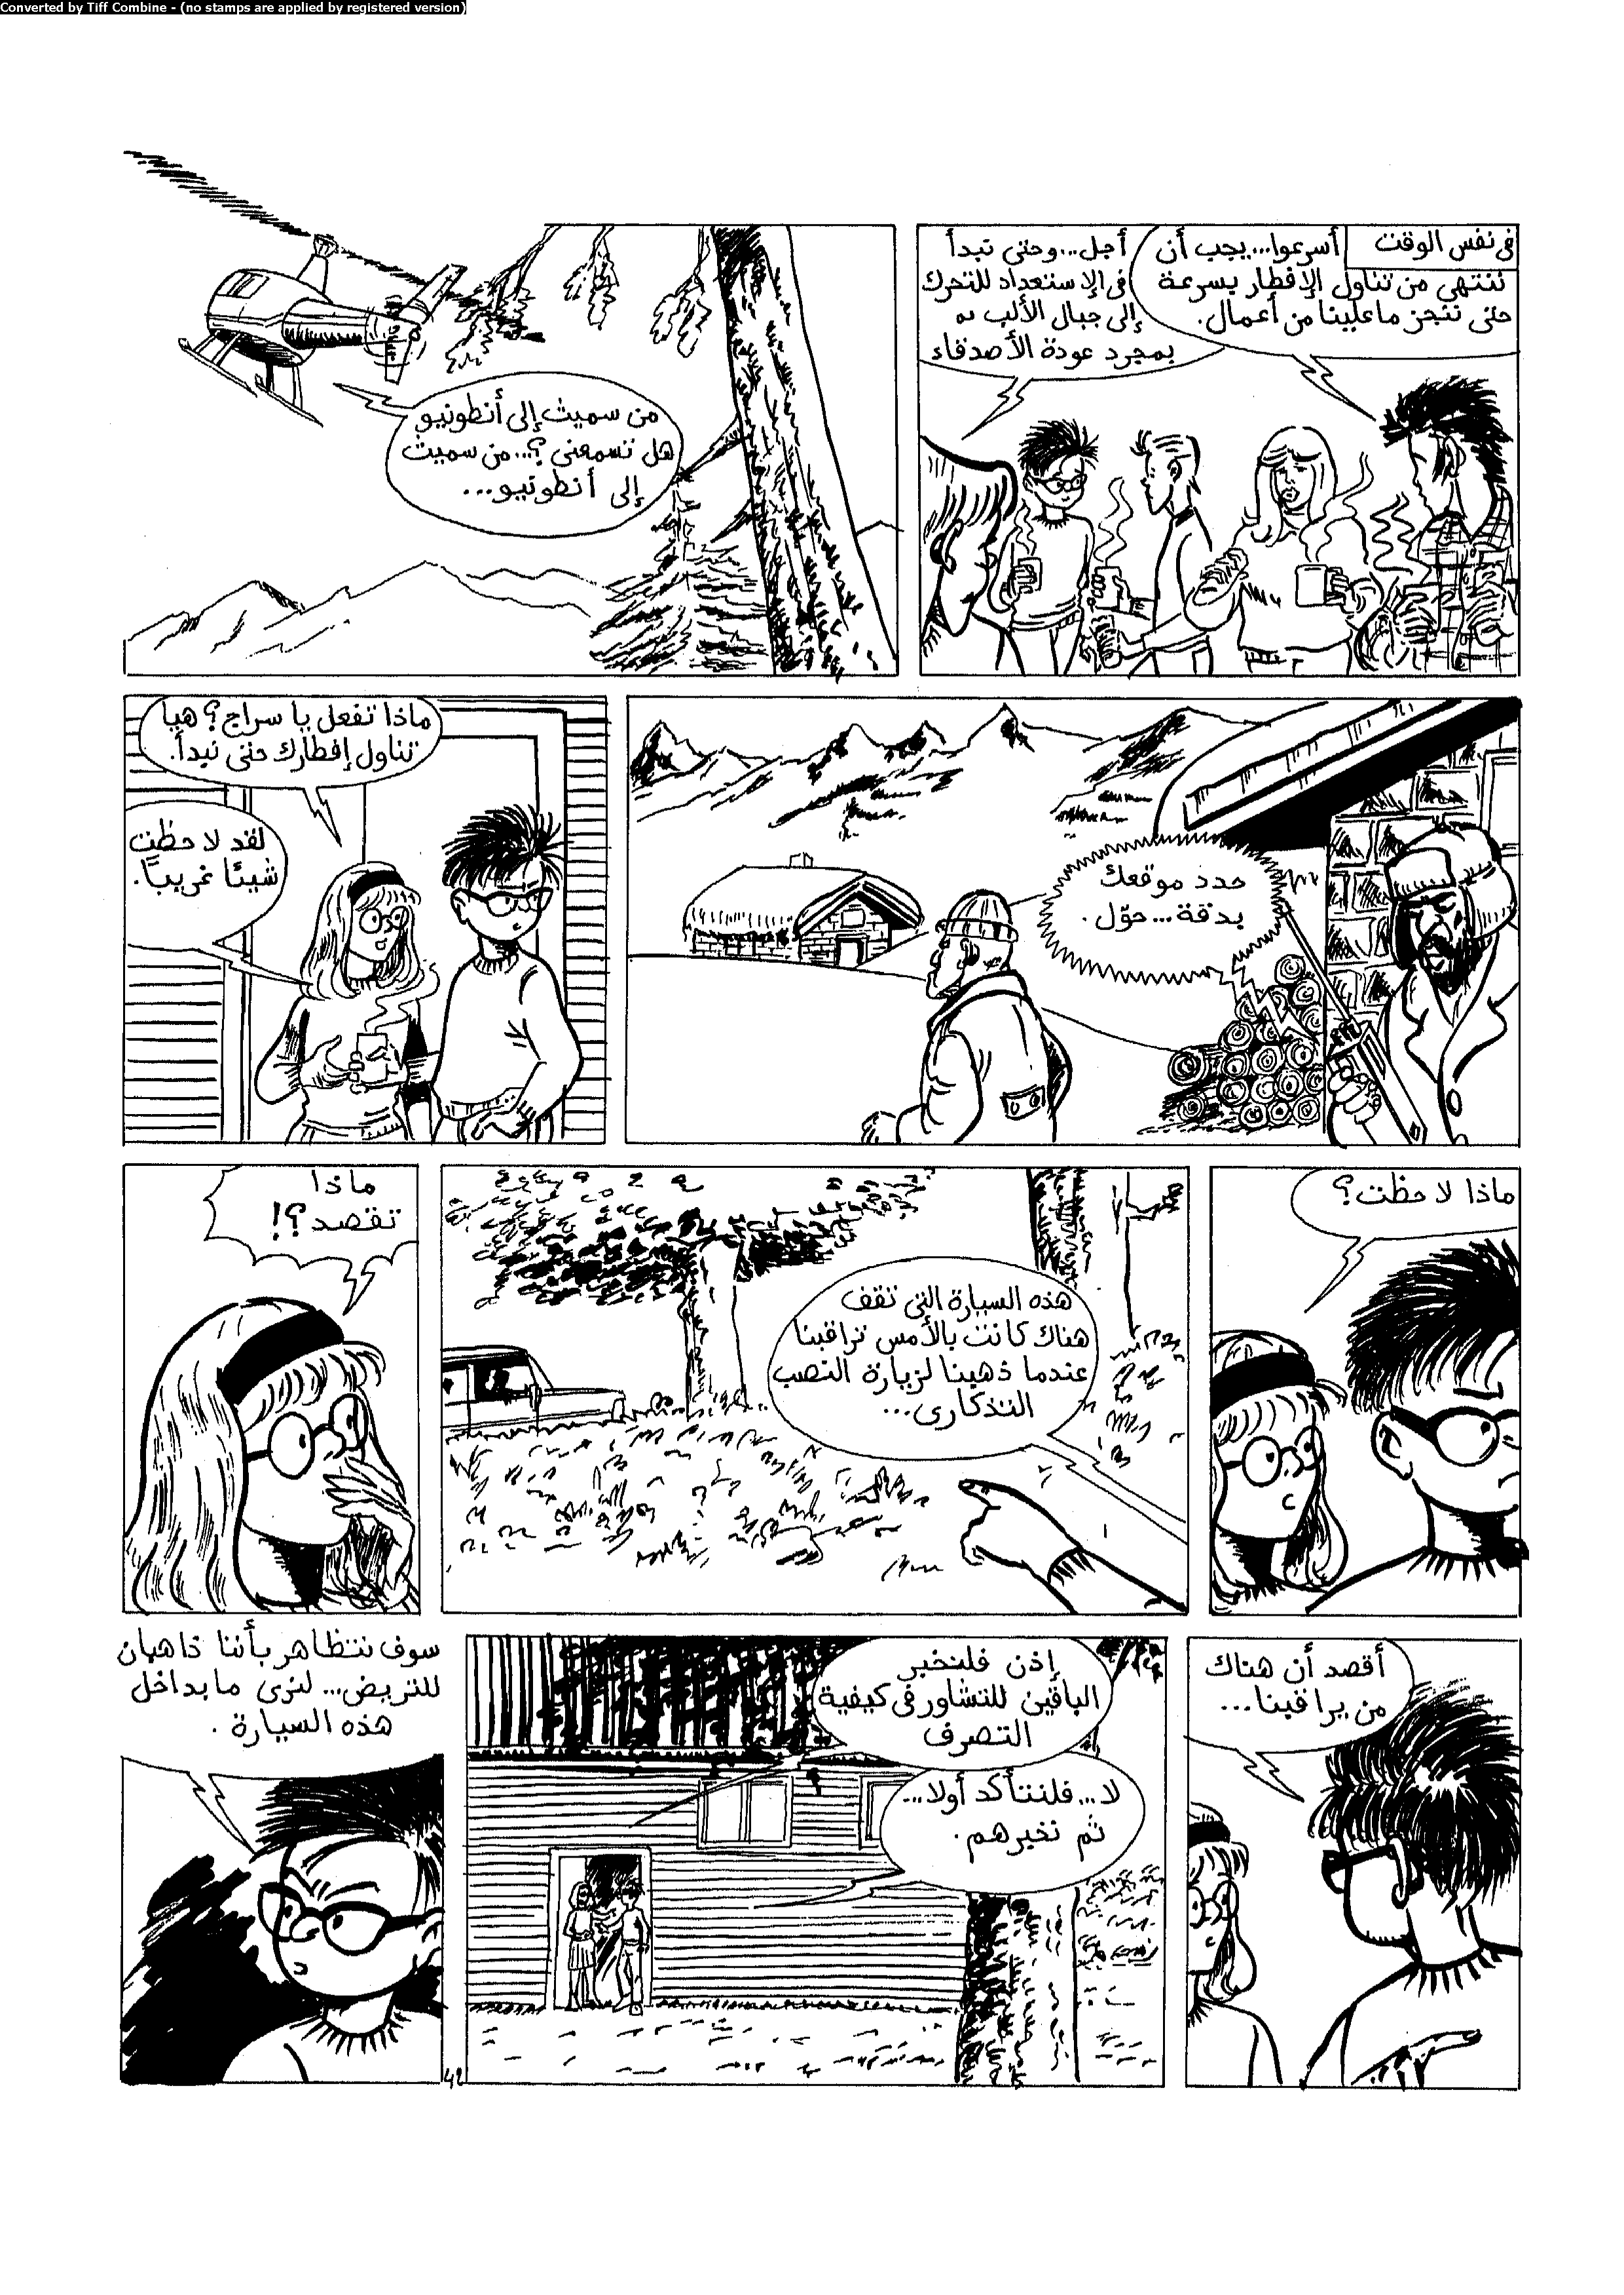 Converted by Tiff Combine - (no stamps are applied by registered version)
فى نفس الوقت
أسرعوا...يجب أن
ننتهي من تناول الإفطار بسرعة
حتى ننجز ما علينا من أعمال.
أجل...وحتى نبدأ
فى الإستعداد للتحرك
إلى جبال الألب
بمجرد عودة الأصدقاء
من سميث إلى أنطونيو
هل تسمعنى؟...من سميث
إلى أنطونيو...
حدد موقعك
بدقة...حوّل.
ماذا تفعل يا سراج؟ هيا
تناول إفطارك حتى نبدأ.
لقد لاحظت
شيئًا غريبًا.
ماذا لاحظت؟
هذه السيارة التى تقف
هناك كانت بالأمس تراقبنا
عندما ذهبنا لزيارة النصب
التذكارى...
ماذا
تقصد؟!
أقصد أن هناك
من يراقبنا...
إذن فلنخبر
الباقين للتشاور فى كيفية
التصرف
لا...فلنتأكد أولا...
ثم نخبرهم.
سوف نتظاهر بأننا ذاهبان
للتريض... لنرى ما بداخل
هذه السيارة.
42